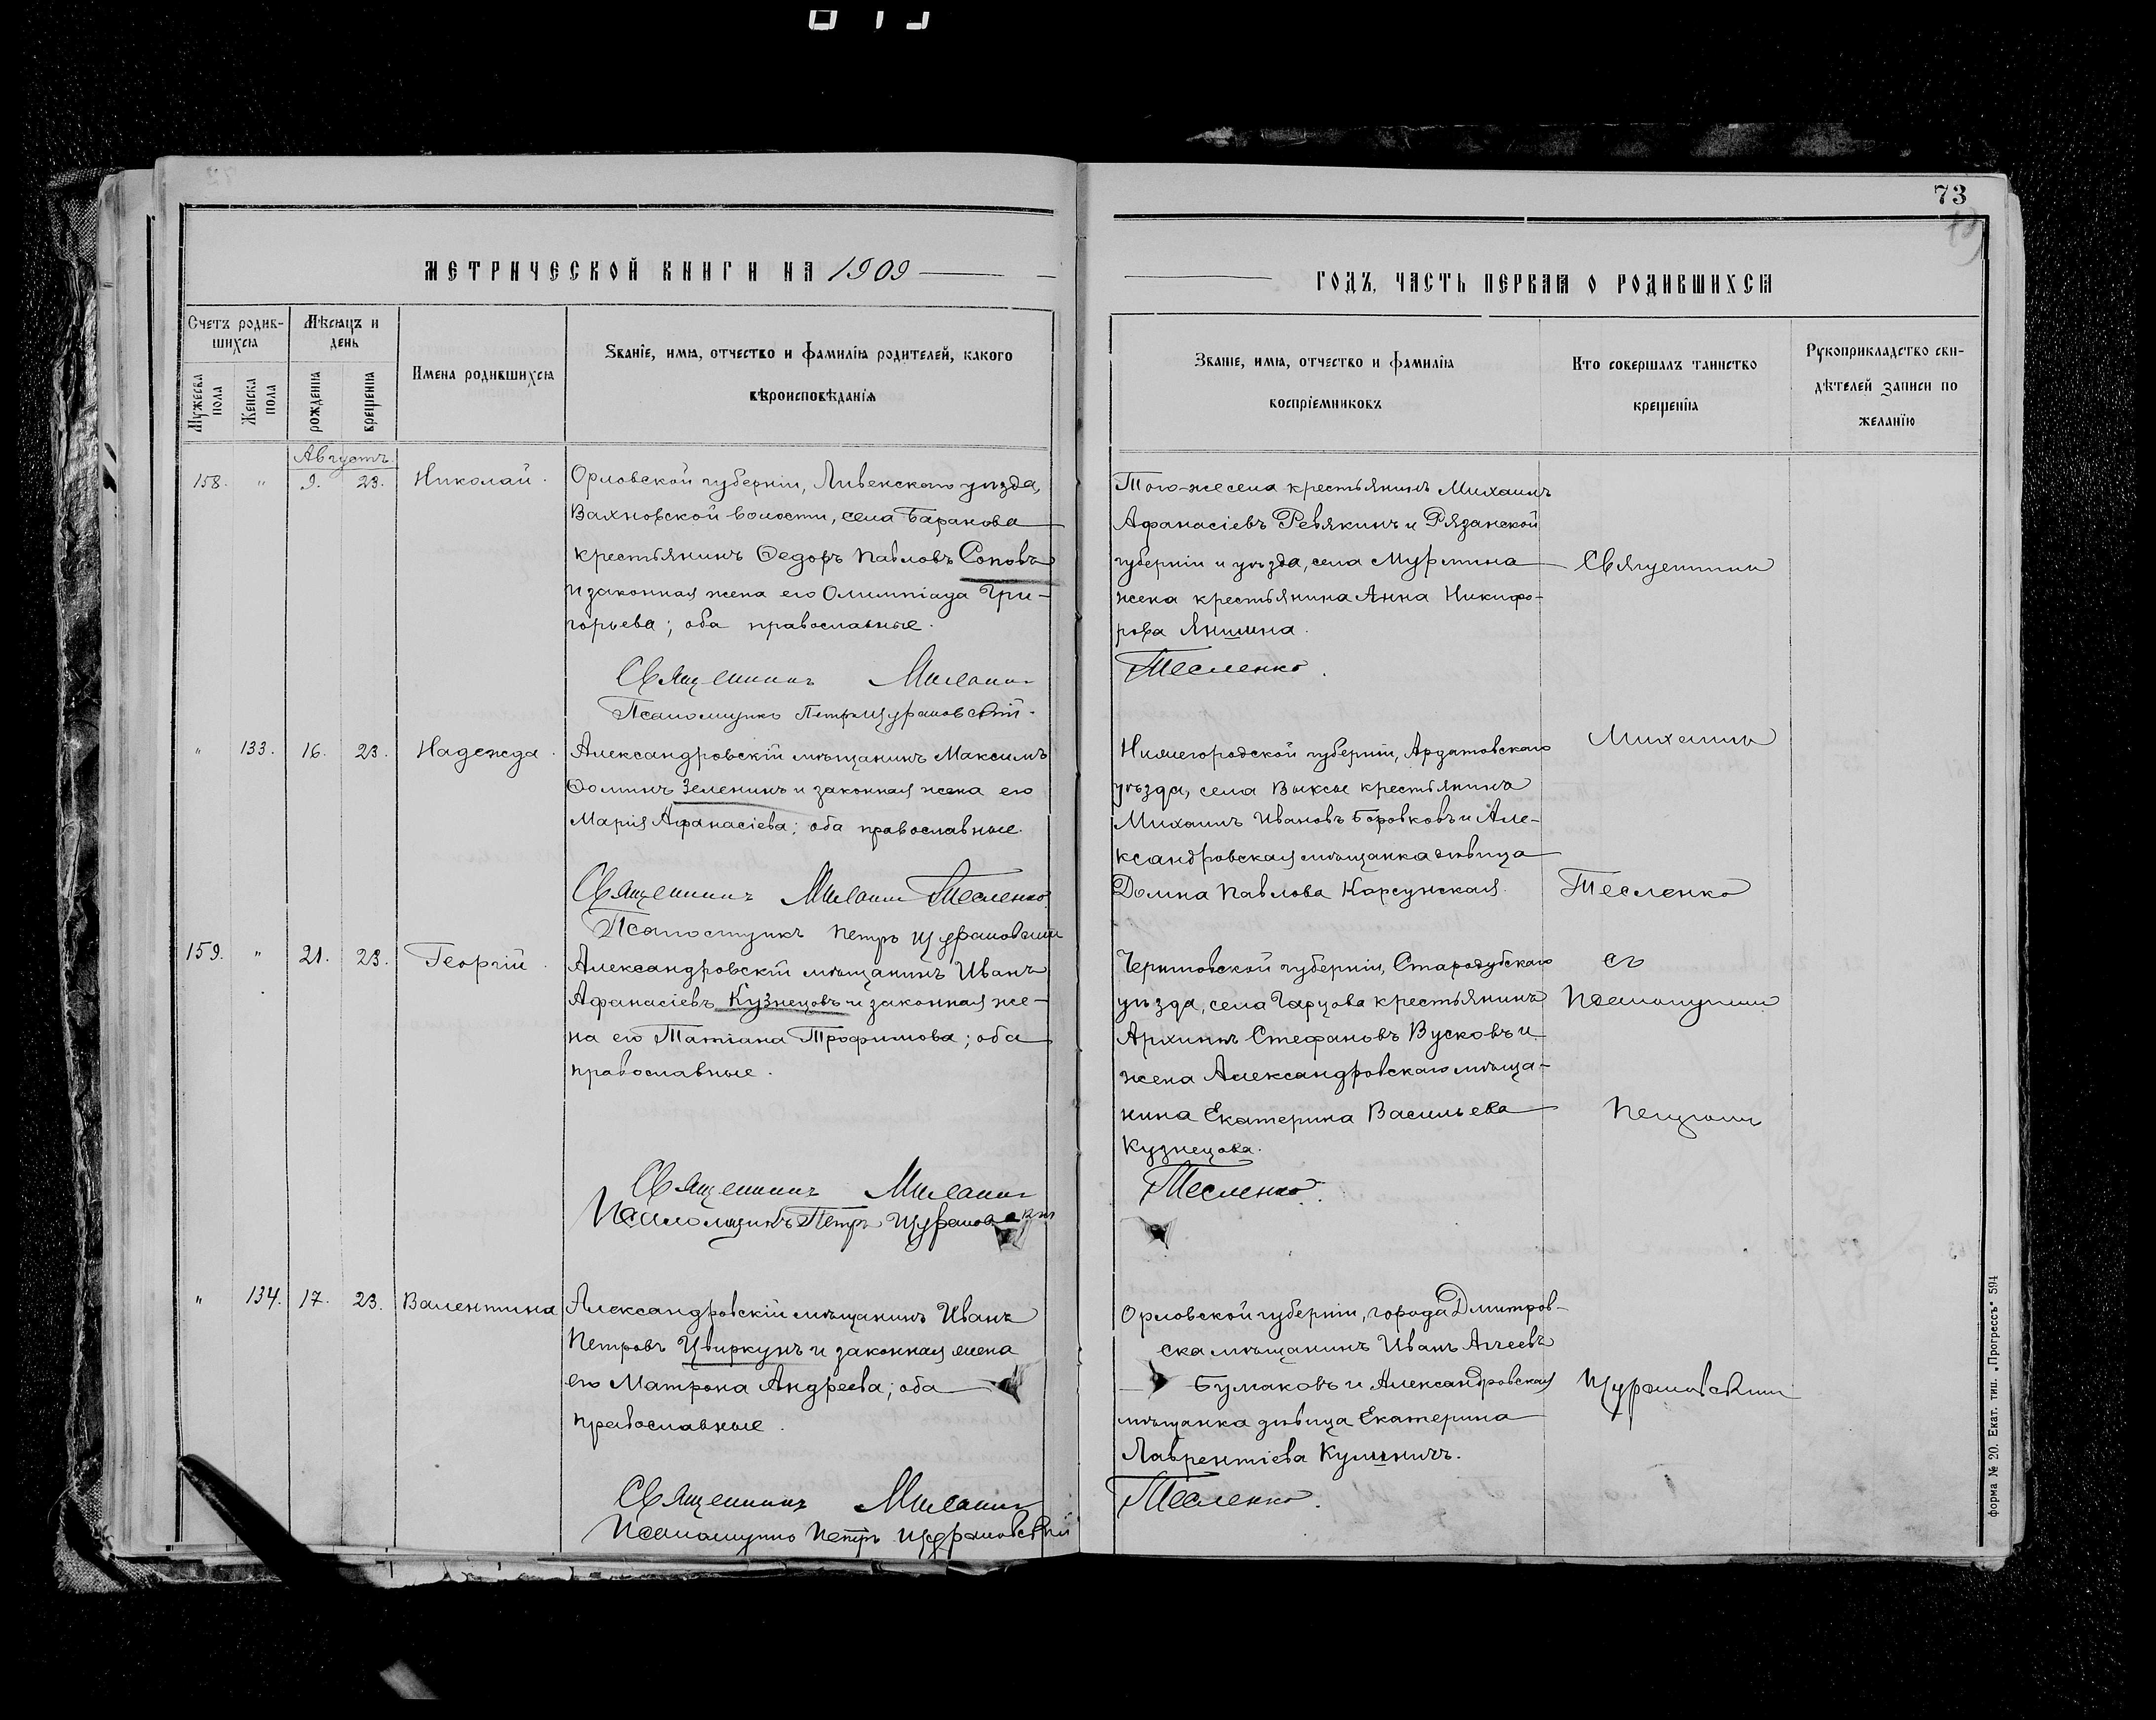 73
МЕТРИЧЕСКОЙ КНИГИ НА 1909
ГОДЪ, ЧАСТЬ ПЕРВАЯ О РОДИВШИХСЯ
Счетъ родив-
шихся
Мужеска пола
Женска пола
Мѣсяцъ и
день
рожденія
крещенія
Имена родившихся
Званіе, имя, отчество и фамилія родителей, какого
вѣроисповѣданія
Званіе, имя, отчество и фамилія
воспріемниковъ
Кто совершалъ таинство
крещенія
Рукоприкладство сви-
дѣтелей записи по
желанію
Августъ
158. " 9. 23. Николай.
Орловской губерніи, Ливенскаго уѣзда,
Вахновской волости, села Баранова
крестьянинъ Ѳедоръ Павловъ Соповъ
и законная жена его Олимпіада Гри-
горьева; оба православные.
Священникъ Михаилъ
Псаломщикъ Петръ Щурановскій.
Того-же села крестьянинъ Михаилъ
Афанасіевъ Ревякинъ и Рязанской
губерніи и уѣзда, села Мурмина
жена крестьянина Анна Никифо-
рова Яншина.
Тесленко.
Священникъ
" 133. 16. 23. Надежда.
Александровскій мѣщанинъ Максимъ
Ѳоминъ Зеленинъ и законная жена его
Марія Афанасіева; оба православные.
Священникъ Михаилъ Тесленко.
Псаломщикъ Петръ Щурановскій
Нижегородской губерніи, Ардатовскаго
уѣзда, села Выксы крестьянинъ
Михаилъ Ивановъ Боровковъ и Але-
ксандровская мѣщанка дѣвица
Домна Павлова Карсунская.
Михаилъ
Тесленко
159. " 21. 23. Георгій.
Александровскій мѣщанинъ Иванъ
Афанасіевъ Кузнецовъ и законная же-
на его Татіана Трофимова; оба
православные.
Священникъ Михаилъ
Псаломщикъ Петръ Щурановскій
Черниговской губерніи, Стародубскаго
уѣзда, села Гарцова крестьянинъ
Архипъ Стефановъ Вусковъ и
жена Александровскаго мѣща-
нина Екатерина Васильева
Кузнецова.
Тесленко.
съ
Псаломщикомъ
Петромъ
" 134. 17. 23. Валентина
Александровскій мѣщанинъ Иванъ
Петровъ Цвиркунъ и законная жена
его Матрона Андреева; оба
православные.
Священникъ Михаилъ
Псаломщикъ Петръ Щурановскій
Орловской губерніи, города Дмитров-
ска мѣщанинъ Иванъ Агеевъ
Бумаковъ и Александровская
мѣщанка дѣвица Екатерина
Лаврентіева Кулиничъ.
Тесленко.
Щурановскимъ
форма № 20. Екат. тип. „Прогрессъ" 594